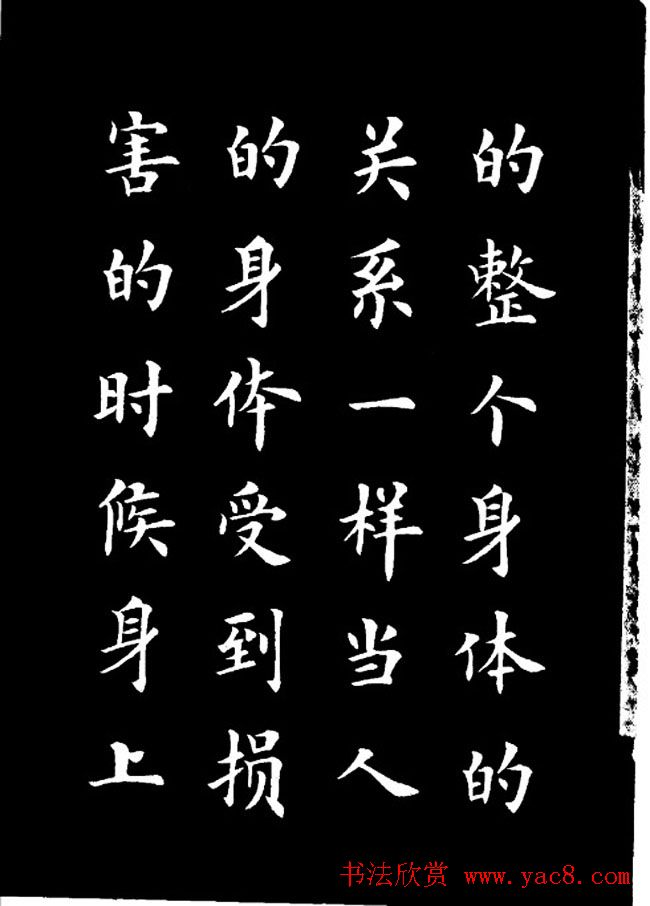 的整个身体的
关系一样当人
的身体受到损
害的时候身上
书法欣赏 www.yac8.com